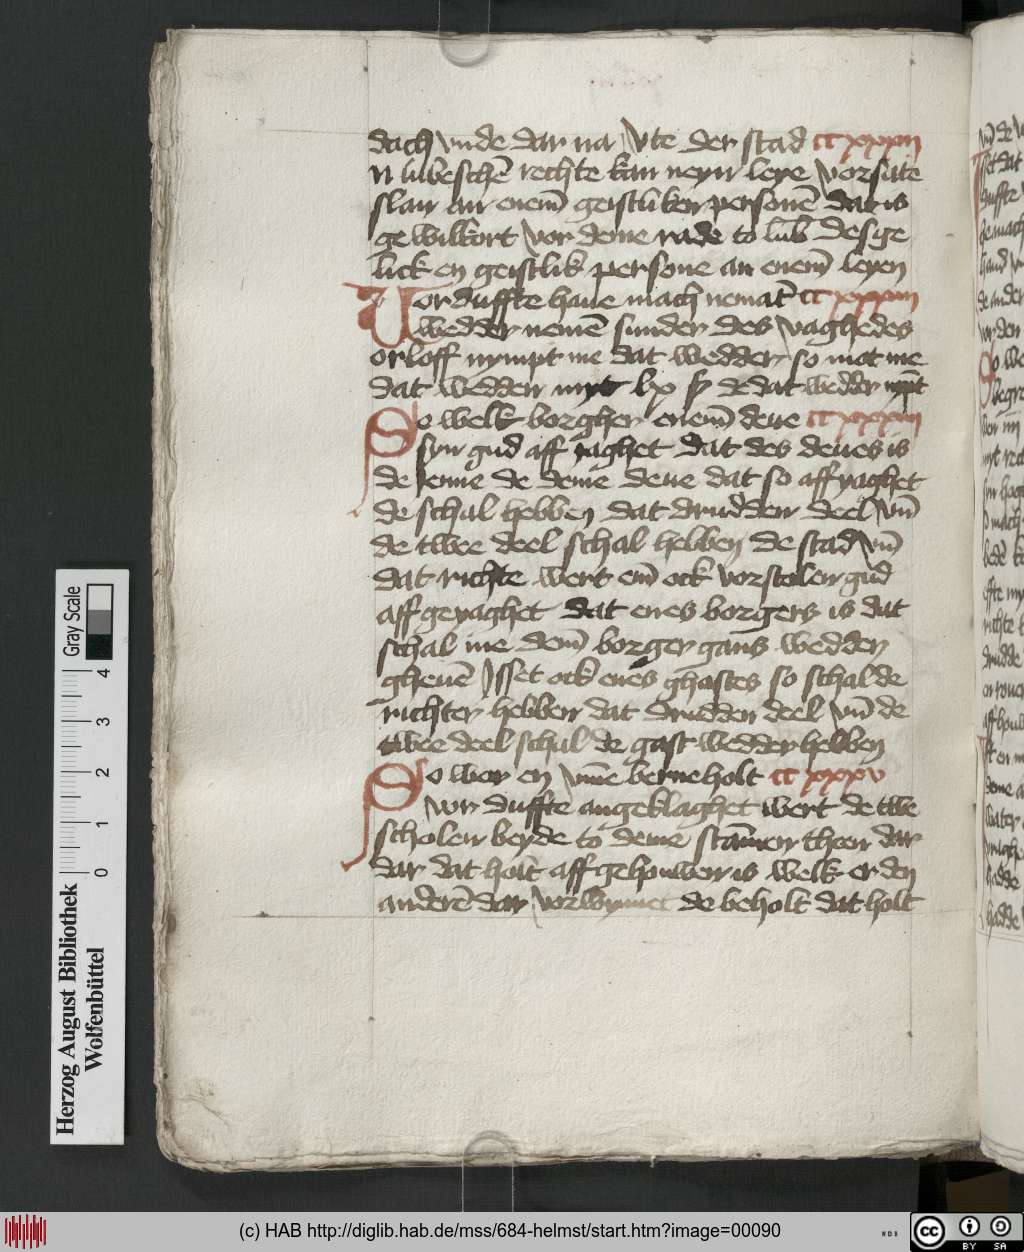 dach vnde dar na vte der stad cc xxxii
N lubeschē rechte kan neyn leye vorsate
slan an enem̄ geistliken personē dat is
ge wilkort vor deme rade to lub̄ Desge
lick en geistlik persone an enem̄ leyen
Vor duffte haue mach nemat cc xxxiii
wedder nemē sunder des vaghedes
orloff nympt me dat wedder so mot me
dat wedden myt lx ß de dat wedder nypt
So welk borgher enem̄ deue cc xxxiiii
syn gud aff yaghet dat des deues is
de yenne de deme deue dat so aff yaghet
de schal hebben dat drudden deel vn̄
de twee deel schal hebben de stad vn̄
dat richte wert em̄ ock vorstolen gud
aff geyaghet dat enes borgers is dat
schal me dem̄ borger gans wedder
gheuē Isset ock enes ghastes so schal de
richter hebben dat drudden deel vn̄ de
twee deel schal de gast wedder hebben
So wor en vm̄e berneholt cc xxxv
vor duffte angeklaghet wert de twe
scholen beyde to deme stam̄en theen dar
dar dat holt aff gehouwen is welk er den
anderē dar vorwynnet de beholt dat holt
Gray Scale
0 1 2 3 4
Herzog August Bibliothek
Wolfenbüttel
(c) HAB http://diglib.hab.de/mss/684-helmst/start.htm?image=00090
WDB
cc BY SA